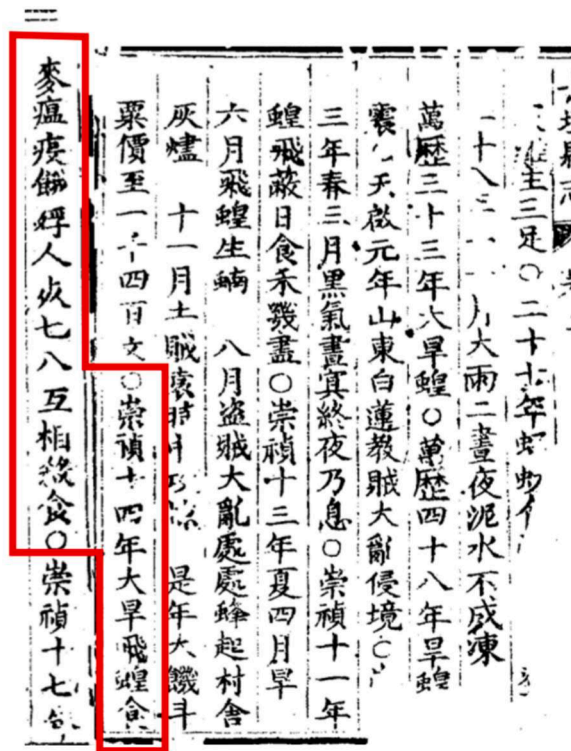 縣志
三足○二十七年
大雨二晝夜泥水不成凍
萬歷三十三年大旱蝗○萬歷四十八年旱蝗
天啟元年山東白蓮教賊大亂侵境○
三年春三月黑氣晝冥終夜乃息○崇禎十一年
蝗飛蔽日食禾幾盡○崇禎十三年夏四月旱
六月飛蝗生蝻 八月盜賊大亂處處蜂起村舍
灰燼 十一月土賊袁時中 是年大饑斗
粟價至一千四百文○崇禎十四年大旱飛蝗食
麥瘟疫餓殍人死七八互相殘食○崇禎十七年